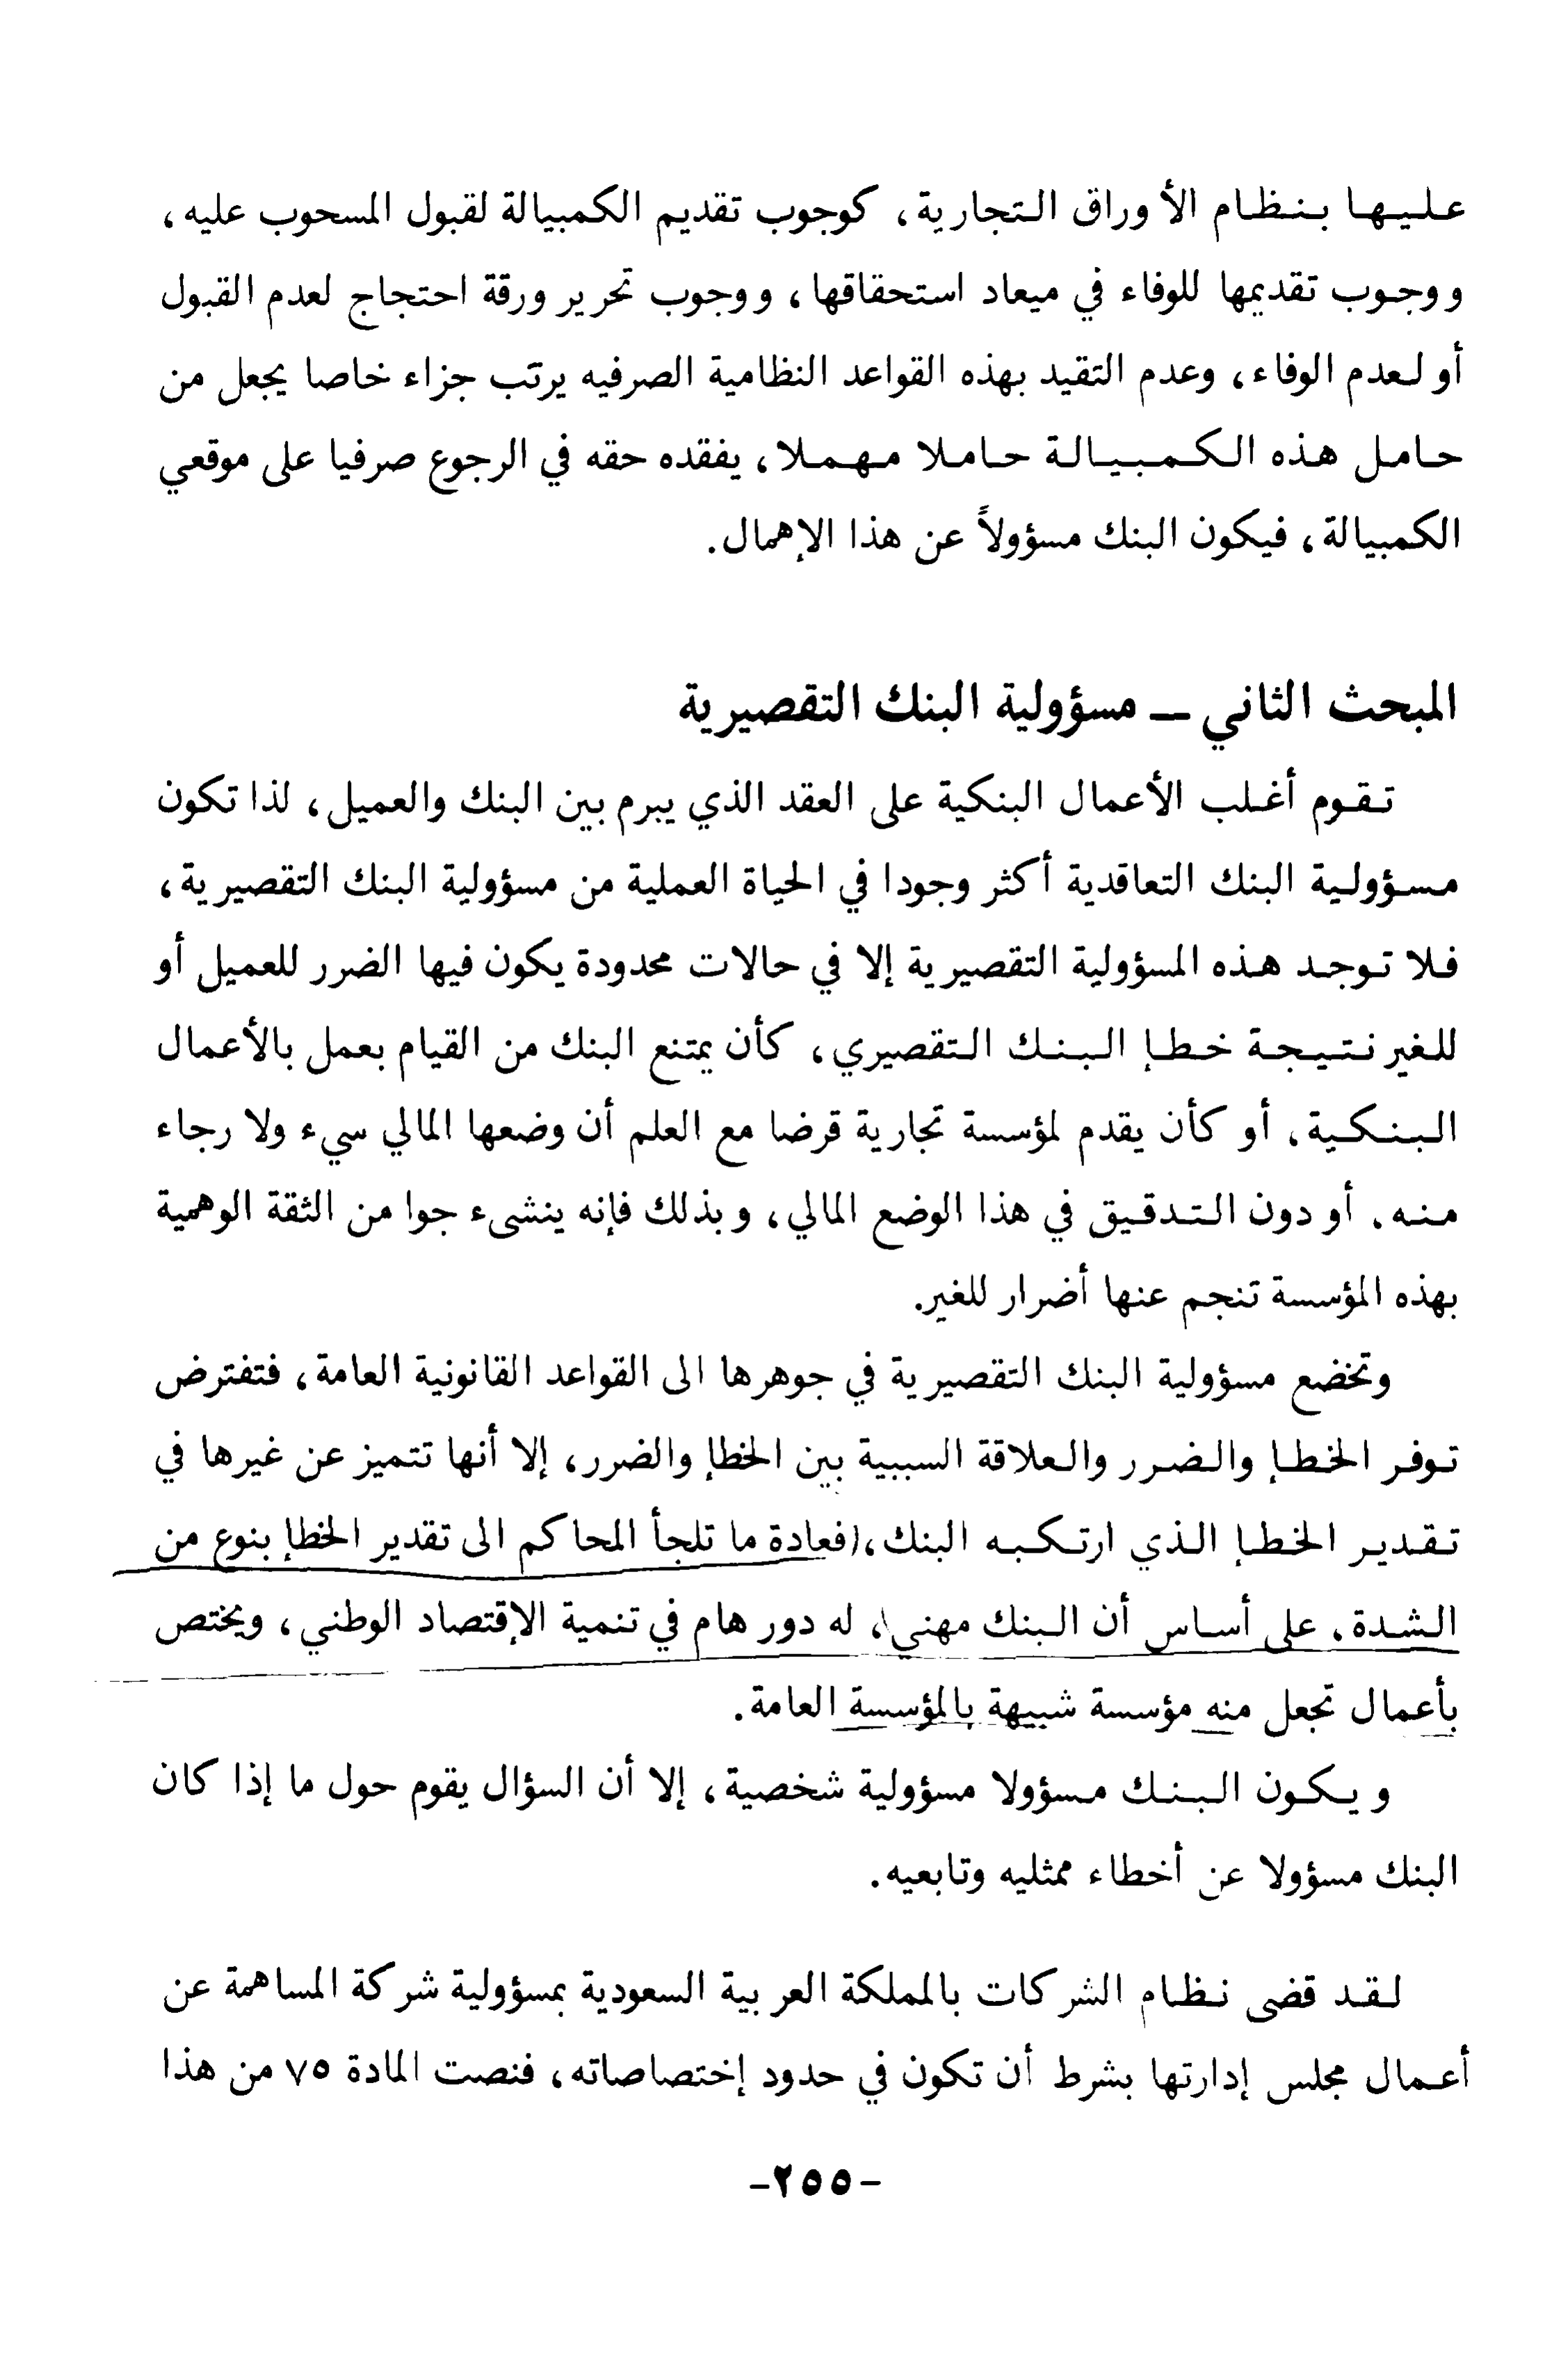 عليها بنظام الأوراق التجارية، كوجوب تقديم الكمبيالة لقبول المسحوب عليه،
ووجوب تقديمها للوفاء في ميعاد استحقاقها، ووجوب تحرير ورقة احتجاج لعدم القبول
أو لعدم الوفاء، وعدم التقيد بهذه القواعد النظامية الصرفيه يرتب جزاء خاصا يجعل من
حامل هذه الكمبيالة حاملا مهملا، يفقده حقه في الرجوع صرفيا على موقعي
الكمبيالة، فيكون البنك مسؤولاً عن هذا الإهمال.
المبحث الثاني — مسؤولية البنك التقصيرية
تقوم أغلب الأعمال البنكية على العقد الذي يبرم بين البنك والعميل، لذا تكون
مسؤولية البنك التعاقدية أكثر وجودا في الحياة العملية من مسؤولية البنك التقصيرية،
فلا توجد هذه المسؤولية التقصيرية إلا في حالات محدودة يكون فيها الضرر للعميل أو
للغير نتيجة خطإ البنك التقصيري، كأن يمتنع البنك من القيام بعمل بالأعمال
البنكية، أو كأن يقدم لمؤسسة تجارية قرضا مع العلم أن وضعها المالي سيء ولا رجاء
منه، أو دون التدقيق في هذا الوضع المالي، وبذلك فإنه ينشىء جوا من الثقة الوهمية
بهذه المؤسسة تنجم عنها أضرار للغير.
وتخضع مسؤولية البنك التقصيرية في جوهرها الى القواعد القانونية العامة، فتفترض
توفر الخطإ والضرر والعلاقة السببية بين الخطإ والضرر، إلا أنها تتميز عن غيرها في
تقدير الخطإ الذي ارتكبه البنك، (فعادة ما تلجأ المحاكم الى تقدير الخطإ بنوع من
الشدة، على أساس أن البنك مهني)، له دور هام في تنمية الإقتصاد الوطني، ويختص
بأعمال تجعل منه مؤسسة شبيهة بالمؤسسة العامة.
ويكون البنك مسؤولا مسؤولية شخصية، إلا أن السؤال يقوم حول ما إذا كان
البنك مسؤولا عن أخطاء ممثليه وتابعيه.
لقد قضى نظام الشركات بالمملكة العربية السعودية بمسؤولية شركة المساهمة عن
أعمال مجلس إدارتها بشرط أن تكون في حدود إختصاصاته، فنصت المادة ٧٥ من هذا
-٢٥٥-